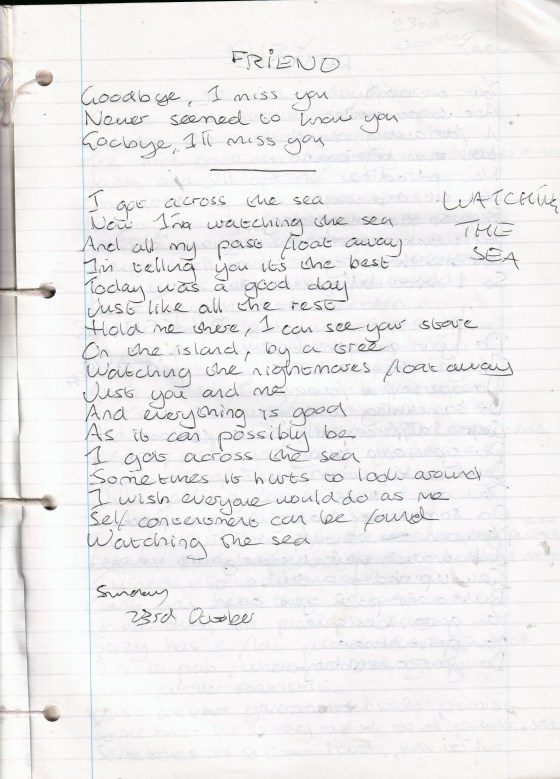 FRIEND
Goodbye, I miss you
Never seemed to know you
Goobye, I'll miss you
I got across the sea
Now I'm watching the sea
And all my past float away
I'm telling you it's the best
Today was a good day
Just like all the rest
Hold me there, I can see your stare
On the island, by a tree
Watching the nightmares float away
Just you and me
And everything is good
As it can possibly be
I got across the sea
Sometimes it hurts to look around
I wish everyone would do as me
Self contentment can be found
Watching the sea
WATCHING
THE
SEA
Sunday
23rd October